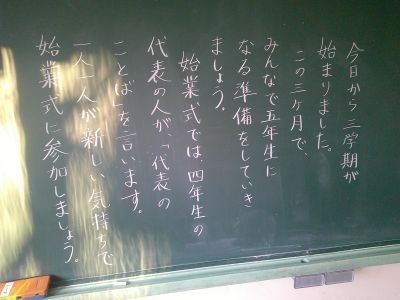 今日から三学期が
始まりました。
この三ヶ月で、
みんなで五年生に
なる準備をしていき
ましょう。
始業式では、四年生の
代表の人が、「代表の
ことば」を言います。
一人一人が新しい気持ちで
始業式に参加しましょう。